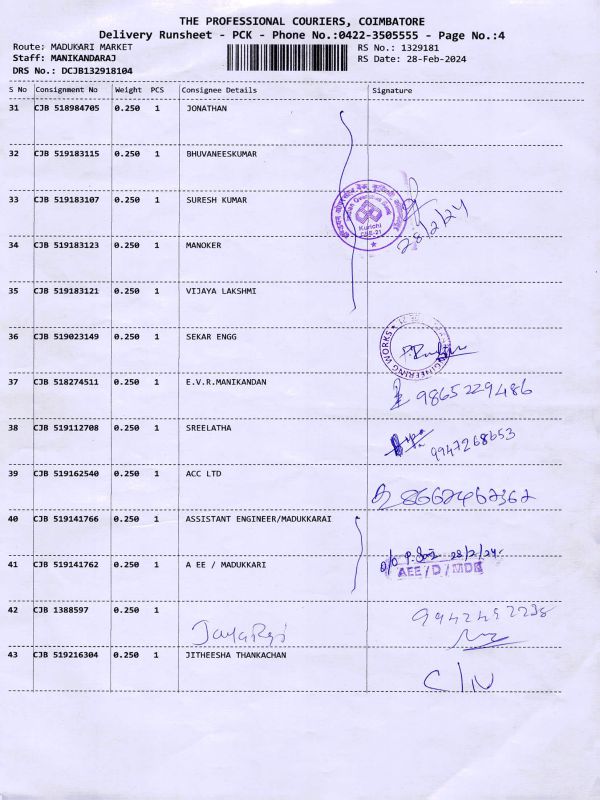 THE PROFESSIONAL COURIERS, COIMBATORE
Delivery Runsheet - PCK - Phone No.:0422-3505555 - Page No.:4
Route: MADUKARI MARKET RS No.: 1329181
Staff: MANIKANDARAJ RS Date: 28-Feb-2024
DRS No.: DCJB132918104
S No Consignment No Weight PCS Consignee Details Signature
31 CJB 518984705 0.250 1 JONATHAN
32 CJB 519183115 0.250 1 BHUVANEESKUMAR
33 CJB 519183107 0.250 1 SURESH KUMAR
Kurichi
28/2/24
34 CJB 519183123 0.250 1 MANOKER
35 CJB 519183121 0.250 1 VIJAYA LAKSHMI
36 CJB 519023149 0.250 1 SEKAR ENGG
ENGINEERING WORKS
37 CJB 518274511 0.250 1 E.V.R.MANIKANDAN
9865229486
38 CJB 519112708 0.250 1 SREELATHA
9947268653
39 CJB 519162540 0.250 1 ACC LTD
40 CJB 519141766 0.250 1 ASSISTANT ENGINEER/MADUKKARAI
28/2/24.
41 CJB 519141762 0.250 1 A EE / MADUKKARI
AEE / D / MDK
42 CJB 1388597 0.250 1
43 CJB 519216304 0.250 1 JITHEESHA THANKACHAN